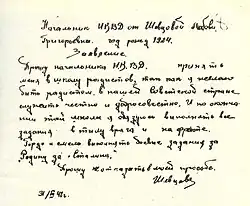 Начальник НКВД от Шевцовой Любови
Григорьевны. год рожд 1924.
Заявление
Прошу начальника НКВД. принять
меня в школу радистов, так как я желаю
быть радистом, в нашей Советской стране
служить честно и добросовестно. И по оконча-
нии этой школы я обязуюсь выполнять все
задания в тылу врага и на фронте.
Гордо и смело выполнять боевые задания за
Родину за Сталина,
Прошу не отказать в моей просьбе.
Шевцова